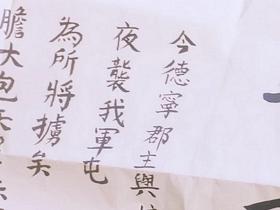 今德寧郡主與
夜襲我軍屯
為所將擄矣
膽大包天